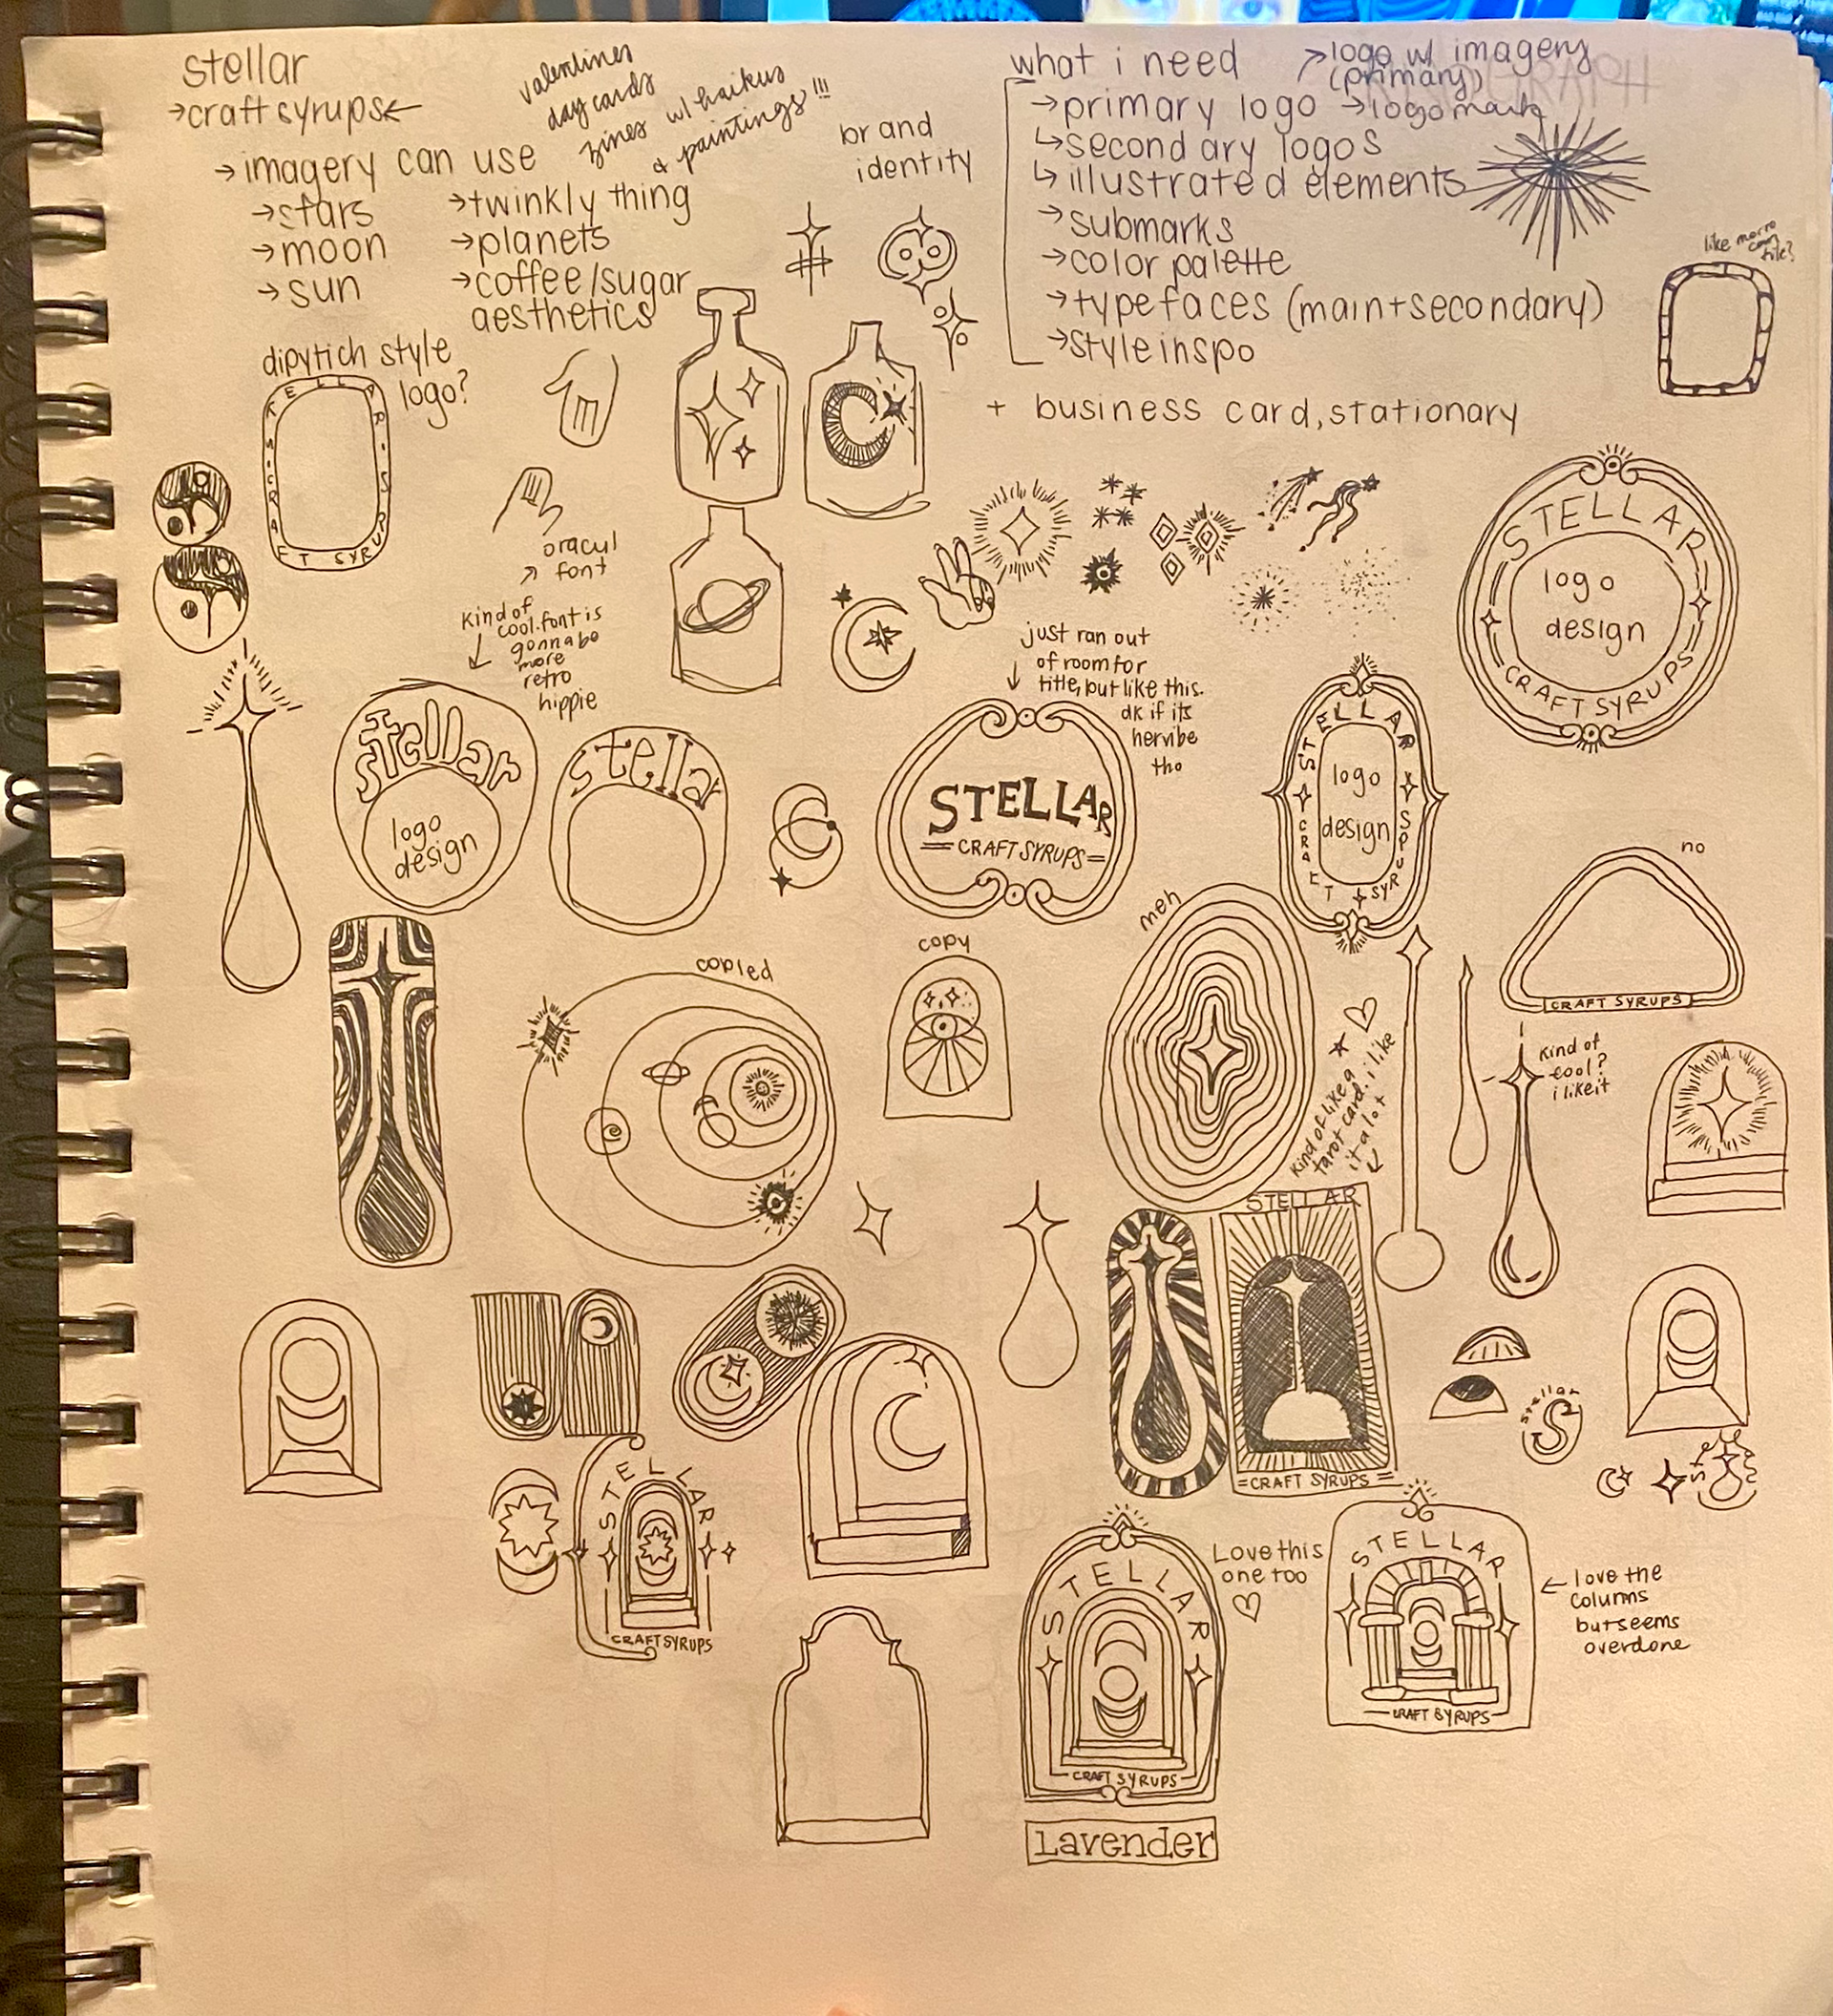 stellar
→craft syrups←
→ imagery can use
→stars
→moon
→sun
→twinkly thing
→planets
→coffee/sugar
aesthetics
valentines
day cards
zines w/ haikus
& paintings!!!
brand
identity
what i need
→logo w/ imagery
(primary)
→primary logo →logomark
↳secondary logos
↳illustrated elements
→submarks
→color palette
→typefaces (main+secondary)
→style inspo
+ business card, stationary
like morro
can
tile?
dipytich style
logo?
STELLAR · SYRU
CRAFT SYRU
oracul
↗ font
kind of
cool. font is
gonna be
more
retro
hippie
STELLAR
logo
design
CRAFT SYRUPS
just ran out
of room for
title, but like this.
dk if its
her vibe
tho
stellar
logo
design
stella
STELLAR
=CRAFT SYRUPS=
STELLAR
logo
design
CRAFT SYRUPS
no
CRAFT SYRUPS
meh
copied
copy
kind of like a
tarot card. i like
it a lot
kind of
cool?
i like it
STELLAR
=CRAFT SYRUPS=
stellar
S
STELLAR
CRAFT SYRUPS
STELLAR
CRAFT SYRUPS
Love this
one too
STELLAR
CRAFT SYRUPS
← love the
colums
but seems
overdone
Lavender